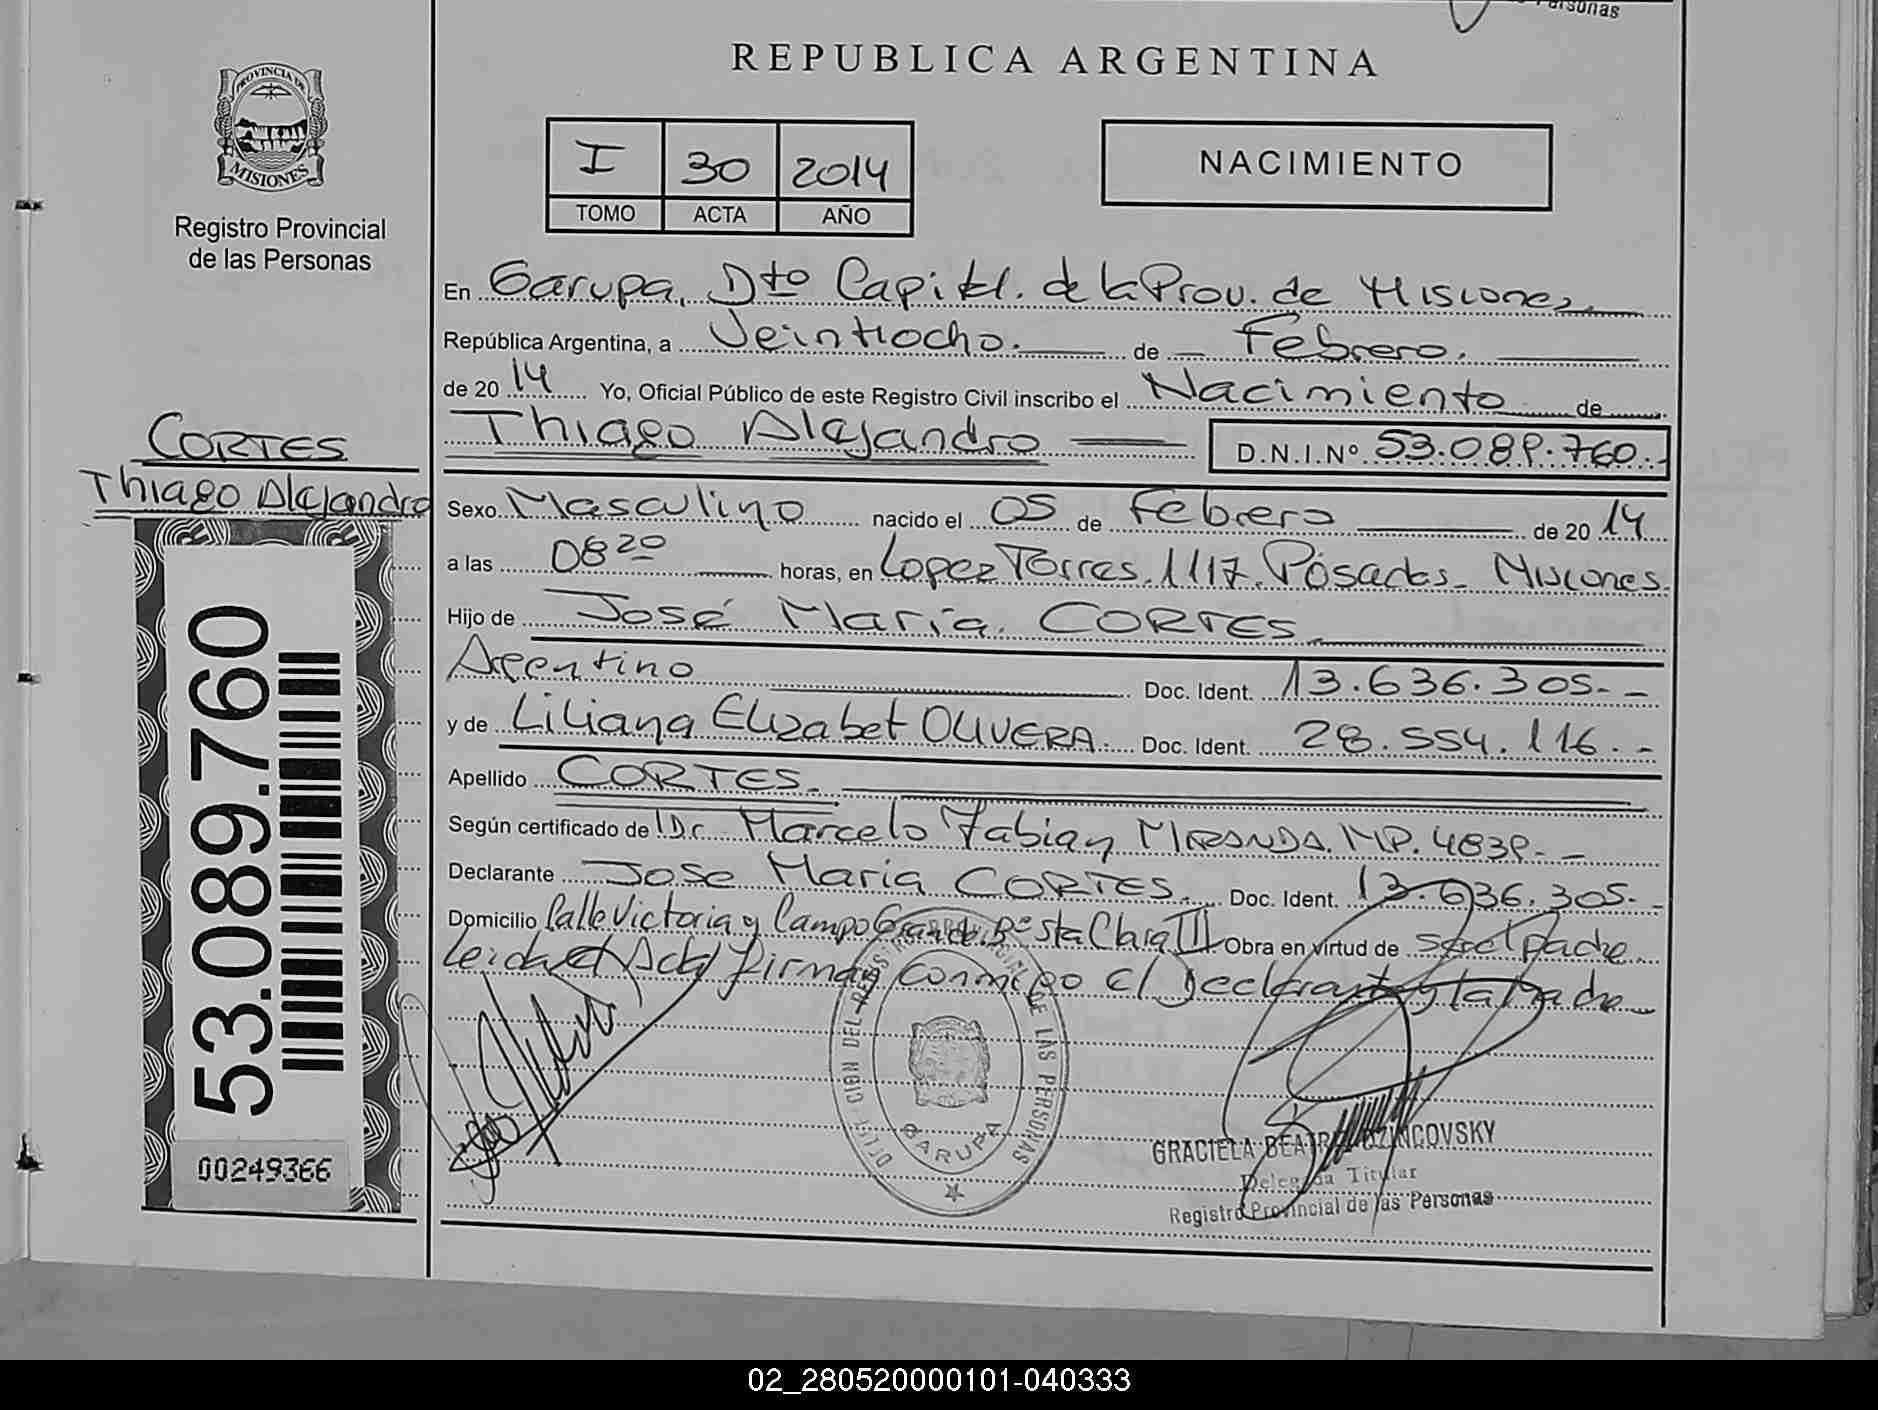 Personas
REPUBLICA ARGENTINA
PROVINCIA DE
MISIONES
Registro Provincial
de las Personas
I 30 2014
TOMO ACTA AÑO
NACIMIENTO
En Garupa, Dto Capital. de la Prov. de Misiones
República Argentina, a Veintiocho. de Febrero.
de 20 14 Yo, Oficial Público de este Registro Civil inscribo el Nacimiento de
Thiago Alejandro D.N.I.Nº 53.089.760.-
CORTES
Thiago Alejandro
Sexo Masculino nacido el 05 de Febrero de 20 14
a las 08 20 horas, en Lopez Torres 1117. Posadas - Misiones.
Hijo de José María. CORTES
Argentino Doc. Ident. 13.636.305.-
y de Liliana Elizabet OLIVERA. Doc. Ident. 28.554.116.-
Apellido CORTES.
Según certificado de Dr. Marcelo Fabian MIRANDA. MP. 4839.-
Declarante Jose Maria CORTES. Doc. Ident. 13.636.305.-
Domicilio Calle Victoria y Campo Grande. Bº Sta Clara III Obra en virtud de ser el padre
Leida el Acta firman conmigo el Declarante y la Madre
53.089.760
00249366
DEL REGISTRO PROVINCIAL DE LAS PERSONAS
GARUPA
GRACIELA BEATRIZ DZINCOVSKY
Delegada Titular
Registro Provincial de las Personas
02_280520000101-040333